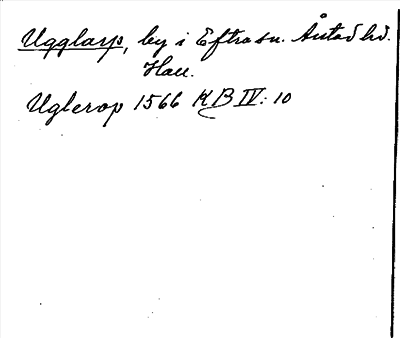 Ugglarp, by i Eftra sn. Årstad hd.
Hall.
Uglerop 1566 KB IV: 10